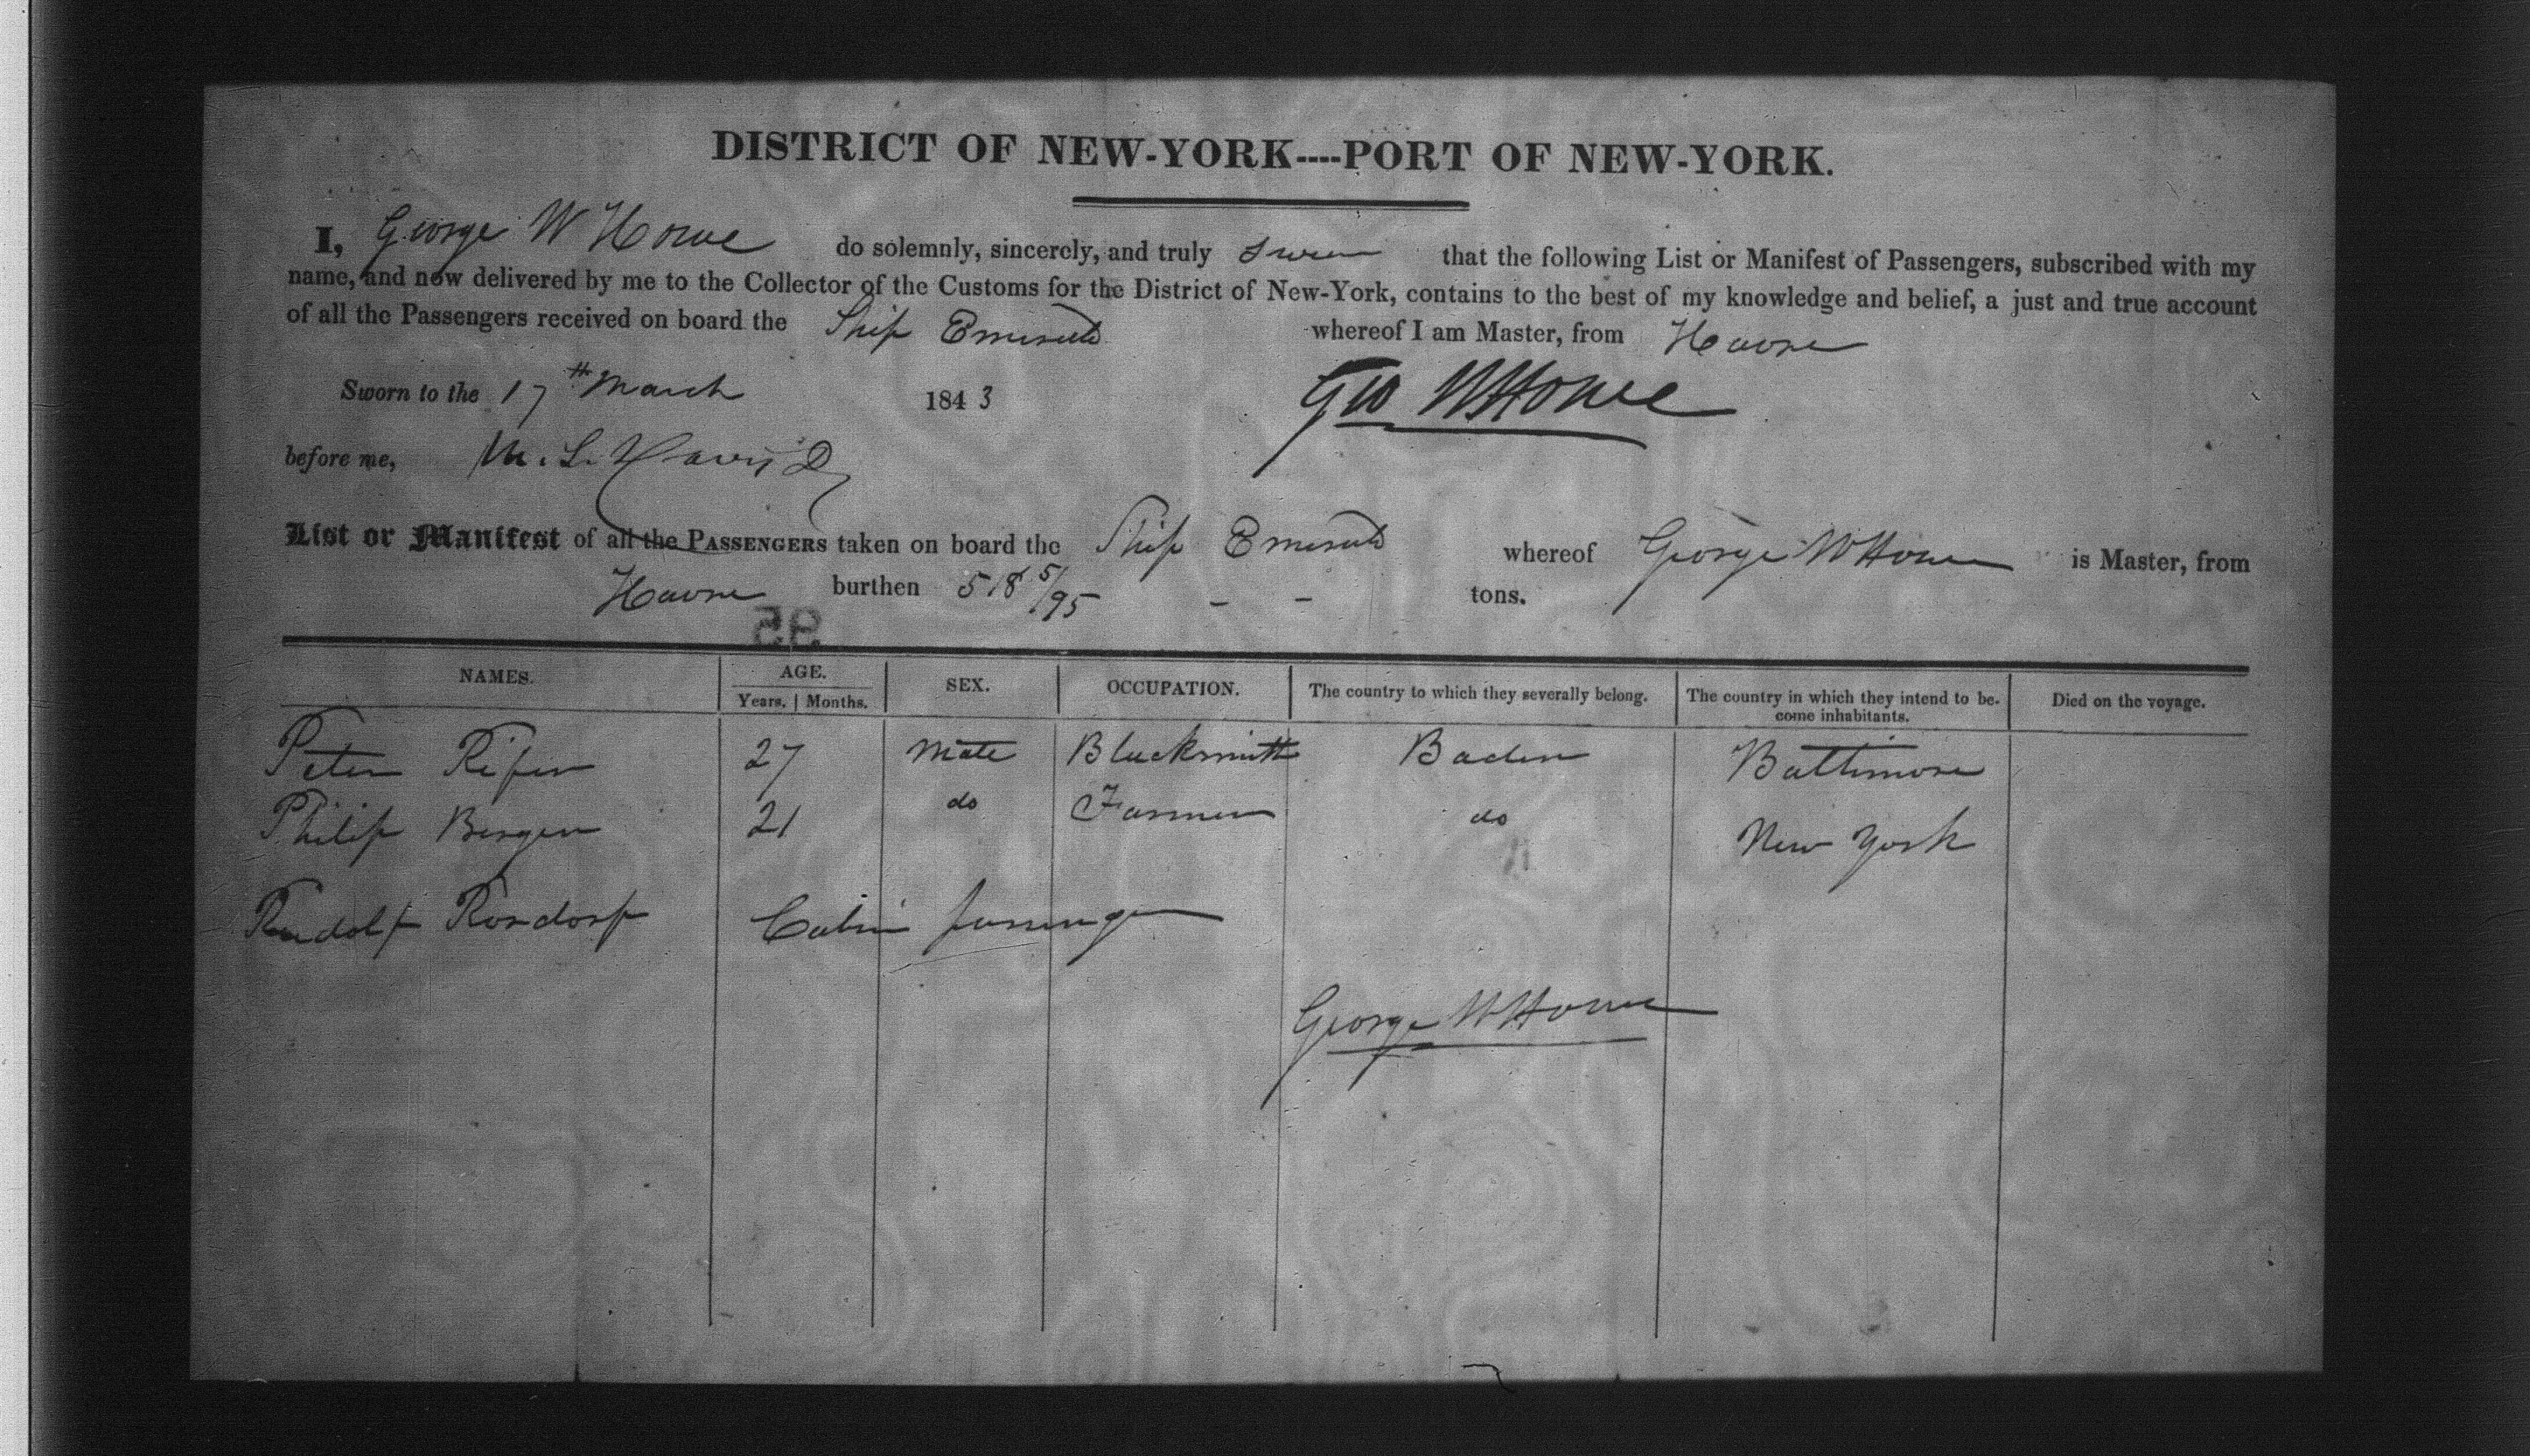 DISTRICT OF NEW-YORK----PORT OF NEW-YORK.
I, George W Howe do solemnly, sincerely, and truly swear that the following List or Manifest of Passengers, subscribed with my
name, and now delivered by me to the Collector of the Customs for the District of New-York, contains to the best of my knowledge and belief, a just and true account
of all the Passengers received on board the Ship Emerald whereof I am Master, from Havre
Sworn to the 17th March 1843 Geo W Howe
before me, M. L. Davis
List or Manifest of all the PASSENGERS taken on board the Ship Emerald whereof George W Howe is Master, from
Havre burthen 518 5/95 - - tons.
95
NAMES. AGE. SEX. OCCUPATION. The country to which they severally belong. The country in which they intend to be-
come inhabitants. Died on the voyage.
Years. Months.
Peter 27 Male Blacksmith Baden Baltimore
Philip Bergen 21 do Farmer do New York
Rudolf Rosdorf Cabin passenger
George W Howe